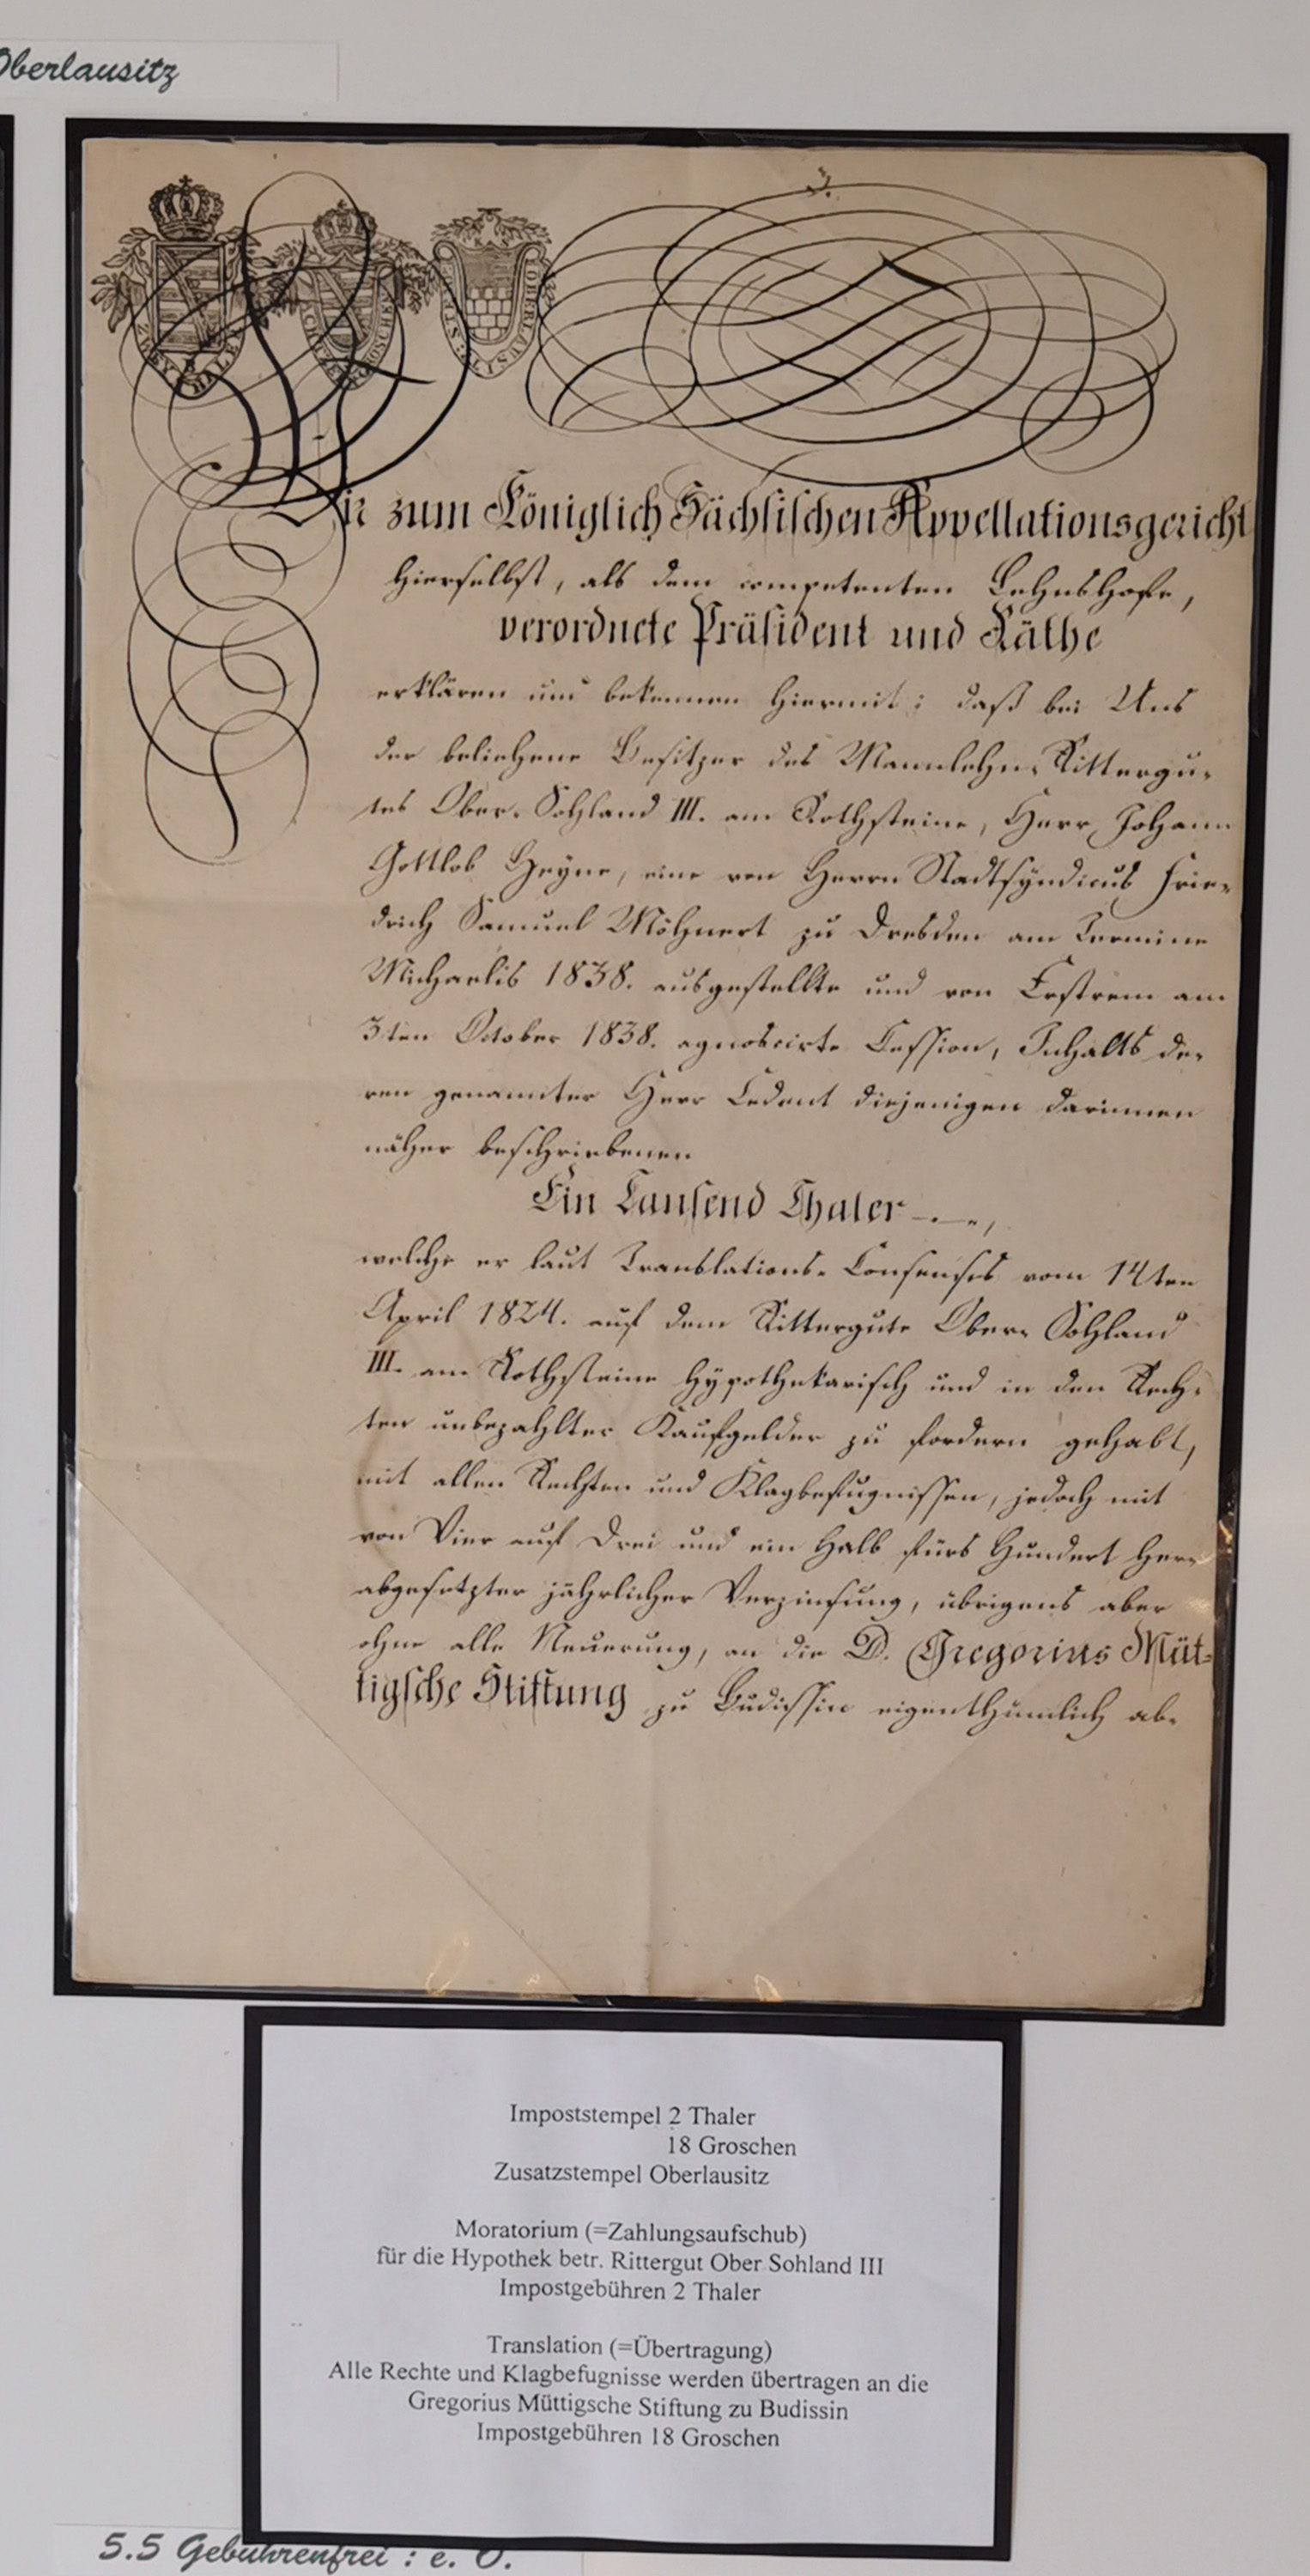 Oberlausitz
3.
ZWEY THALER
ACHTZEHN GROSCHEN
STPL: I: OBERLAUSITZ
Wir zum Königlich Sächsischen Appellationsgericht
hierselbst, als dem competenten Lehnshofe,
verordnete Präsident und Räthe
erklären und bekennen hiermit: daß bei Uns
der beliehene Besitzer des Mannlehn-Rittergu-
tes Ober-Sohland III. am Rothsteine, Herr Johann
Gottlob Heyne, eine von Herrn Stadtsyndicus Frie-
drich Samuel Möhnert zu Dresden am Termine
Michaelis 1838. ausgestellte und von Ersterem am
3ten October 1838. agnoscirte Cession, Inhalts de-
ren genannter Herr Cedent diejenigen darinnen
näher beschriebenen
Ein Tausend Thaler -.-.,
welche er laut Translations-Consenses vom 14ten
April 1824. auf dem Rittergute Ober-Sohland
III. am Rothsteine hypothekarisch und in den Rech-
ten unbezahlter Kaufgelder zu fordern gehabt,
mit allen Rechten und Klagbefugnissen, jedoch mit
von Vier auf Drei und ein halb fürs Hundert her-
abgesetzter jährlicher Verzinsung, übrigens aber
ohne alle Neuerung, an die D. Gregorius Müt-
tigsche Stiftung zu Budissin eigenthümlich ab-
Impoststempel 2 Thaler
18 Groschen
Zusatzstempel Oberlausitz
Moratorium (=Zahlungsaufschub)
für die Hypothek betr. Rittergut Ober Sohland III
Impostgebühren 2 Thaler
Translation (=Übertragung)
Alle Rechte und Klagbefugnisse werden übertragen an die
Gregorius Müttigsche Stiftung zu Budissin
Impostgebühren 18 Groschen
5.5 Gebührenfrei : e. O.